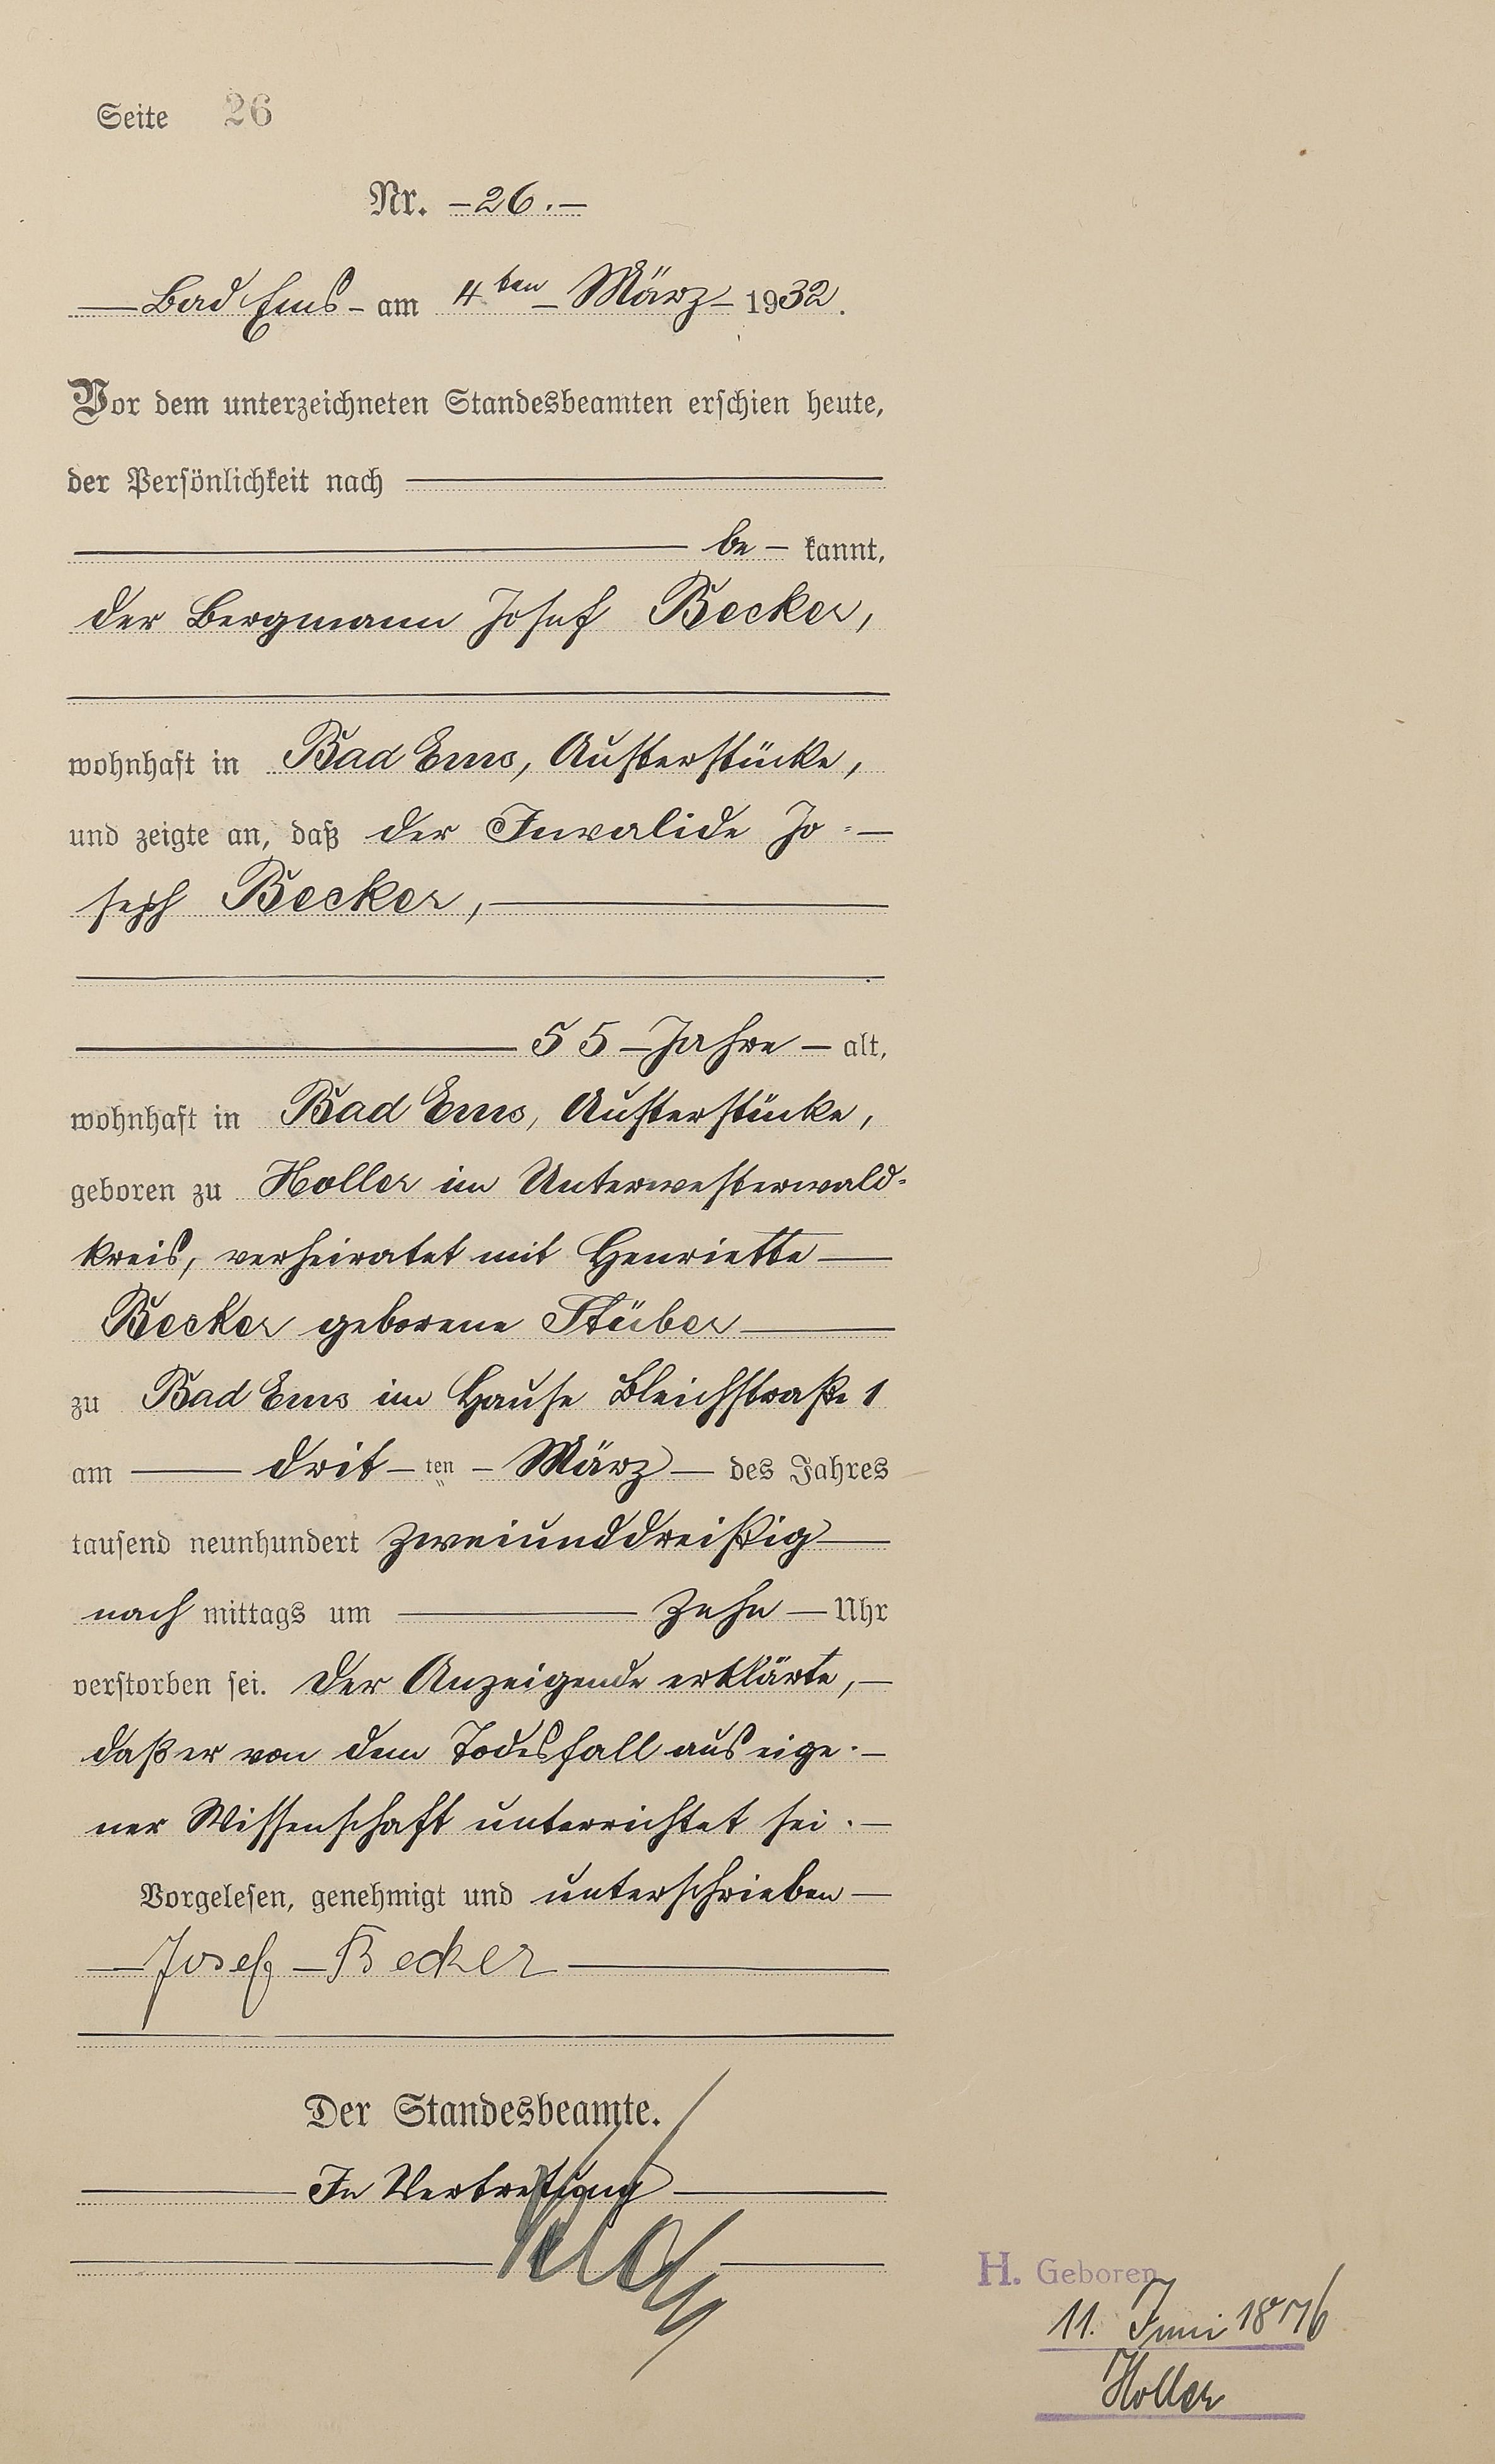 Seite 26
Nr. – 26. –
— Bad Ems – am 4ten – März – 1932.
Vor dem unterzeichneten Standesbeamten erschien heute,
der Persönlichkeit nach
be – kannt,
der Bergmann Josef Becker,
wohnhaft in Bad Ems, Austerstücke,
und zeigte an, daß der Invalide Jo = —
seph Becker, —
55 – Jahre – alt,
wohnhaft in Bad Ems, Austerstücke,
geboren zu Holler im Unterwesterwald=
kreis, verheiratet mit Henriette —
Becker geborene Stüber —
zu Bad Ems im Hause Bleichstraße 1
am — drit – ten – März – des Jahres
tausend neunhundert zweiunddreißig —
nach mittags um — zehn – Uhr
verstorben sei. Der Anzeigende erklärte, —
daß er von dem Todesfall aus eige. –
ner Wissenschaft unterrichtet sei. –
Vorgelesen, genehmigt und unterschrieben –
— Josef – Becker —
Der Standesbeamte.
— In Vertretung —
H. Geboren
11. Juni 1876
Holler